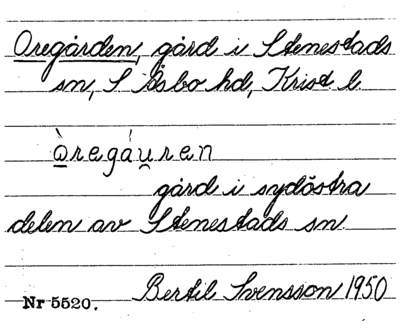 Oregården, gård i Stenestads
sn, S Åsbo hd, Krist l.
òregáu̯ren
gård i sydöstra
delen av Stenestads sn.
Bertil Svensson 1950
Nr 5520.